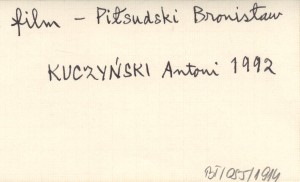 film – Piłsudski Bronisław
KUCZYŃSKI Antoni 1992
BJ/055/1914